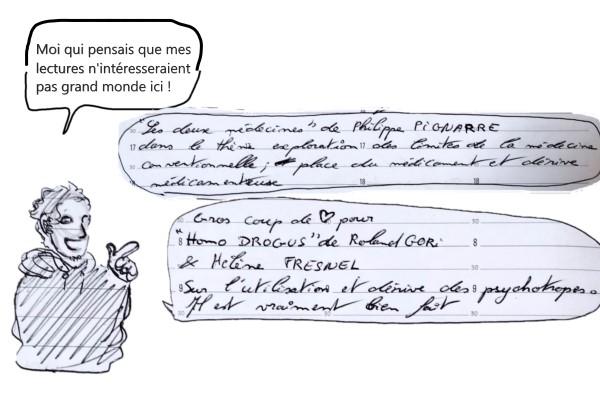 Moi qui pensais que mes
lectures n'intéresseraient
pas grand monde ici !
"Les deux médecines" de Philippe PIGNARRE
dans le thème exploration des limites de la médecine
conventionnelle ; place du médicament et dérive
médicamenteuse
Gros coup de ♡ pour
"Homo DROGUS" de Roland GORi
& Hélène FRESNEL
Sur l'utilisation et dérive des psychotropes.
Il est vraiment bien fait